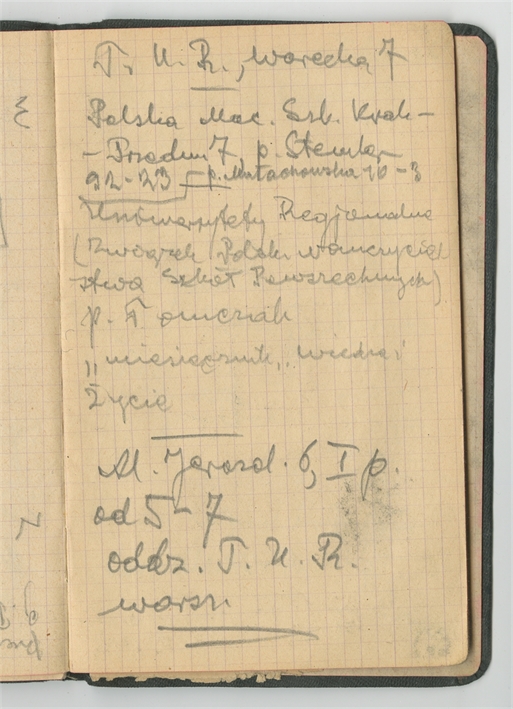 T. U. R., Warecka 7
Polska Mac. Szk. Krak-
-Przedm 7 p. Stemler
92-23 p. Małachowska 10-3
Uniwersytety Regjonalne
(Związek Polski nauczyciel
stwa Szkół Powszechnych)
p. Tomczak
"miesięcznik,, wiedza i
Życie
Al. Jerozol. 6, I p.
od 5-7
oddz. T. U. R.
warsz.